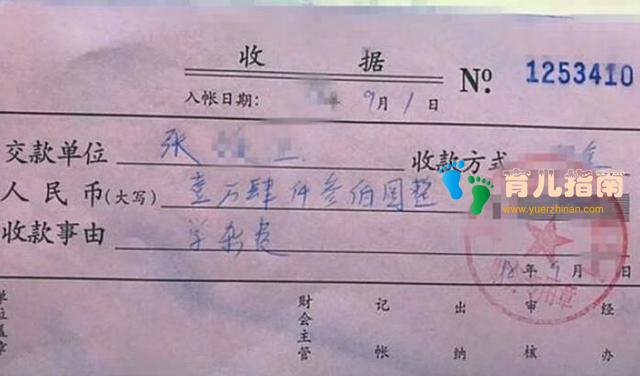 收 据
No. 1253410
入帐日期: 年 9月1日
交款单位 张 收款方式
人民币(大写) 壹万肆仟叁佰圆整
收款事由 学杂费
育儿指南
www.yuerzhinan.com
年 月 日
财会主管 记帐 出纳 审核 经办